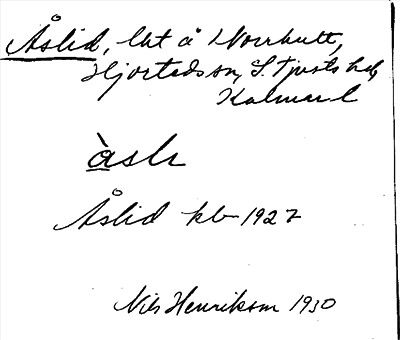 Åslid, lht å Norrhult,
Hjorteds sn, S. Tjusts hd,
Kalmar l
àsli
Åslid kb 1927
Nils Henrikson 1930